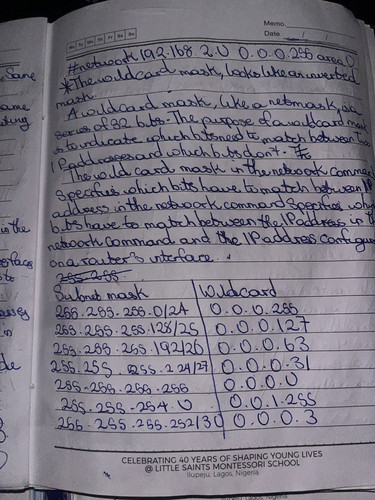 Memo.
Mo Tu We Th Fr Sa Su
Date / /
#network 192.168.2.0 0.0.0.255 area 0
*The wildcard mask, looks like an inverted
mask
A wildcard mask, like a netmask, is a
series of 32 bits. The purpose of a wildcard mask
is to indicate which bits need to match between two
IP addresses and which bits don't.
The wild card mask in the network command
Specifies which bits have to match between IP
address in the network command Specifies which
bits have to match between the IP address in the
network command and the IP address configure
on a router's interface.
255.255
Subnet mask Wildcard
255.255.255.0/24 0.0.0.255
255.255.255.128/25 0.0.0.127
255.255.255.192/26 0.0.0.63
255.255.255.224/27 0.0.0.31
255.255.255.255 0.0.0.0
255.255.254.0 0.0.1.255
255.255.255.252/30 0.0.0.3
CELEBRATING 40 YEARS OF SHAPING YOUNG LIVES
@ LITTLE SAINTS MONTESSORI SCHOOL
Ilupeju, Lagos, Nigeria